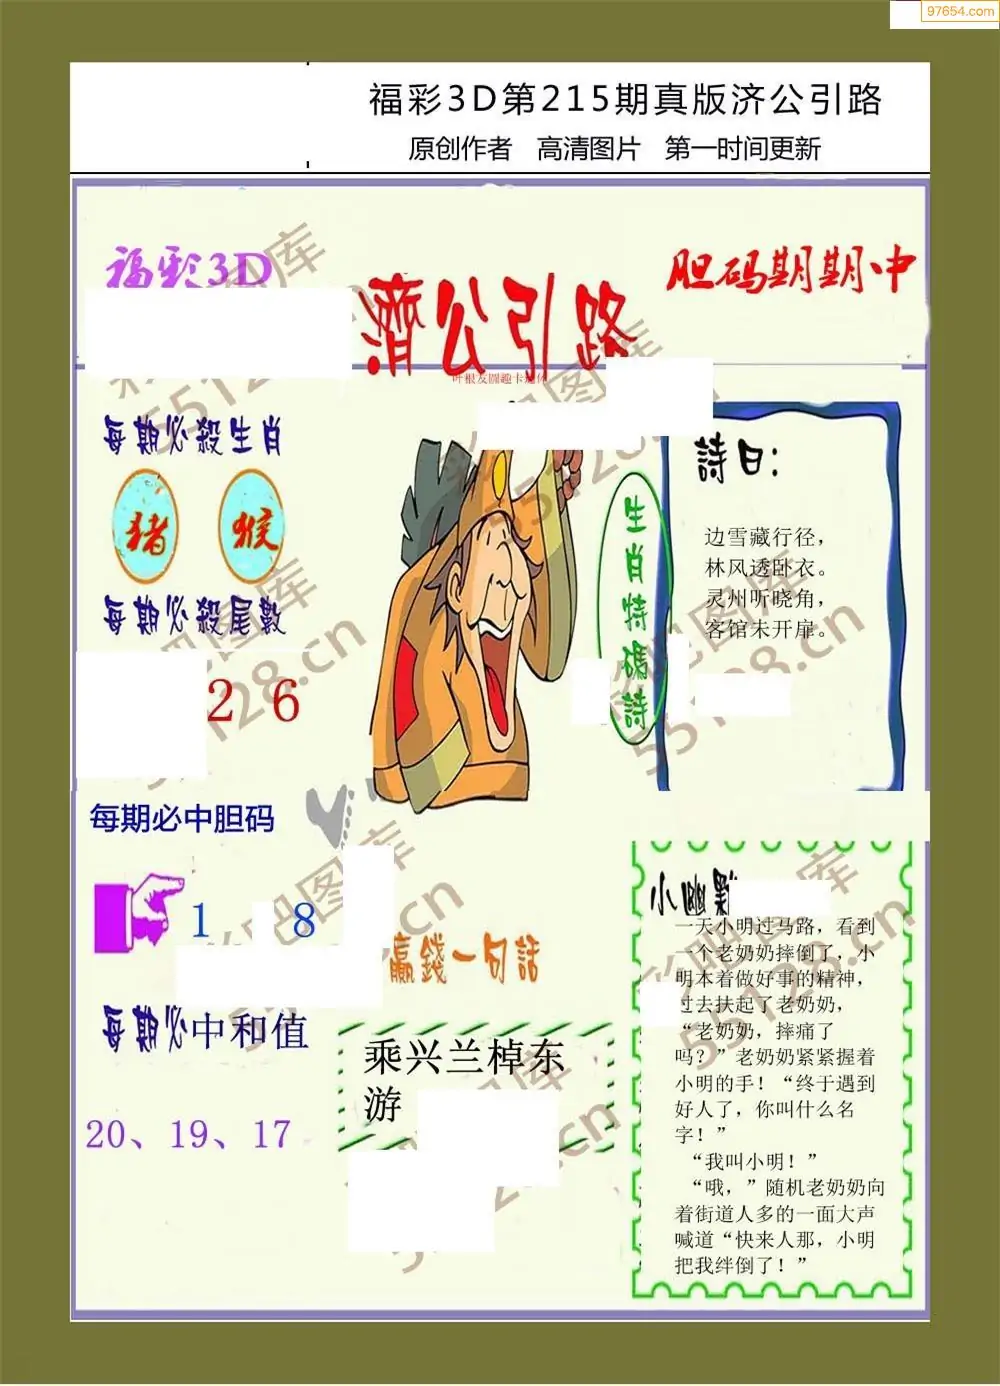 97654.com
福彩3D第215期真版济公引路
原创作者 高清图片 第一时间更新
福彩3D
濟公引路
胆码期期中
每期必殺生肖
猪 猴
每期必殺尾數
2 6
生肖特碼詩
詩曰：
边雪藏行径，
林风透卧衣。
灵州听晓角，
客馆未开扉。
每期必中胆码
1 8
每期必中和值
20、19、17
贏錢一句話
乘兴兰棹东
游
小幽默
一天小明过马路，看到
一个老奶奶摔倒了，小
明本着做好事的精神，
过去扶起了老奶奶，
“老奶奶，摔痛了
吗？”老奶奶紧紧握着
小明的手！“终于遇到
好人了，你叫什么名
字！”
“我叫小明！”
“哦，”随机老奶奶向
着街道人多的一面大声
喊道“快来人那，小明
把我绊倒了！”
55128.cn